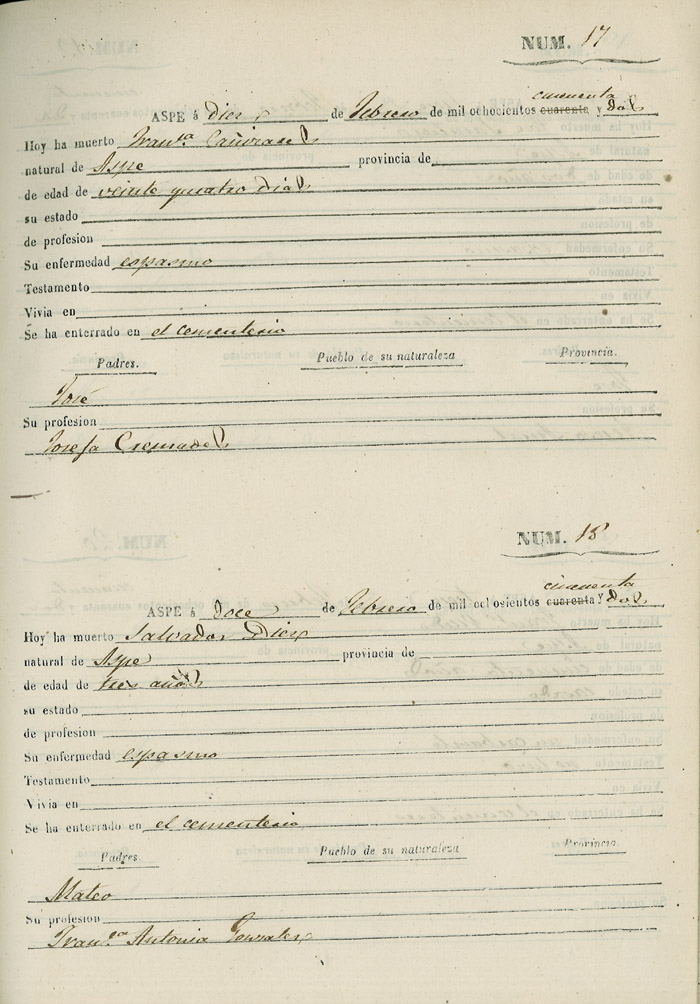 NUM. 17
cincuenta
ASPE á Diez de Febrero de mil ochocientos cuarenta y dos
Hoy ha muerto Fran.ca Cañizares
natural de Aspe provincia de
de edad de veinte quatro dias
su estado
de profesion
Su enfermedad espasmo
Testamento
Vivia en
Se ha enterrado en el cementerio
Padres. Pueblo de su naturaleza Provincia.
José
Su profesion
Josefa Cremades
NUM. 18
cincuenta
ASPE á Doce de Febrero de mil ochosientos cuarenta y dos
Hoy ha muerto Salvador Diez
natural de Aspe provincia de
de edad de tres años
su estado
de profesion
Su enfermedad espasmo
Testamento
Vivia en
Se ha enterrado en el cementerio
Padres. Pueblo de su naturaleza Provincia.
Mateo
Su profesion
Fran.ca Antonia